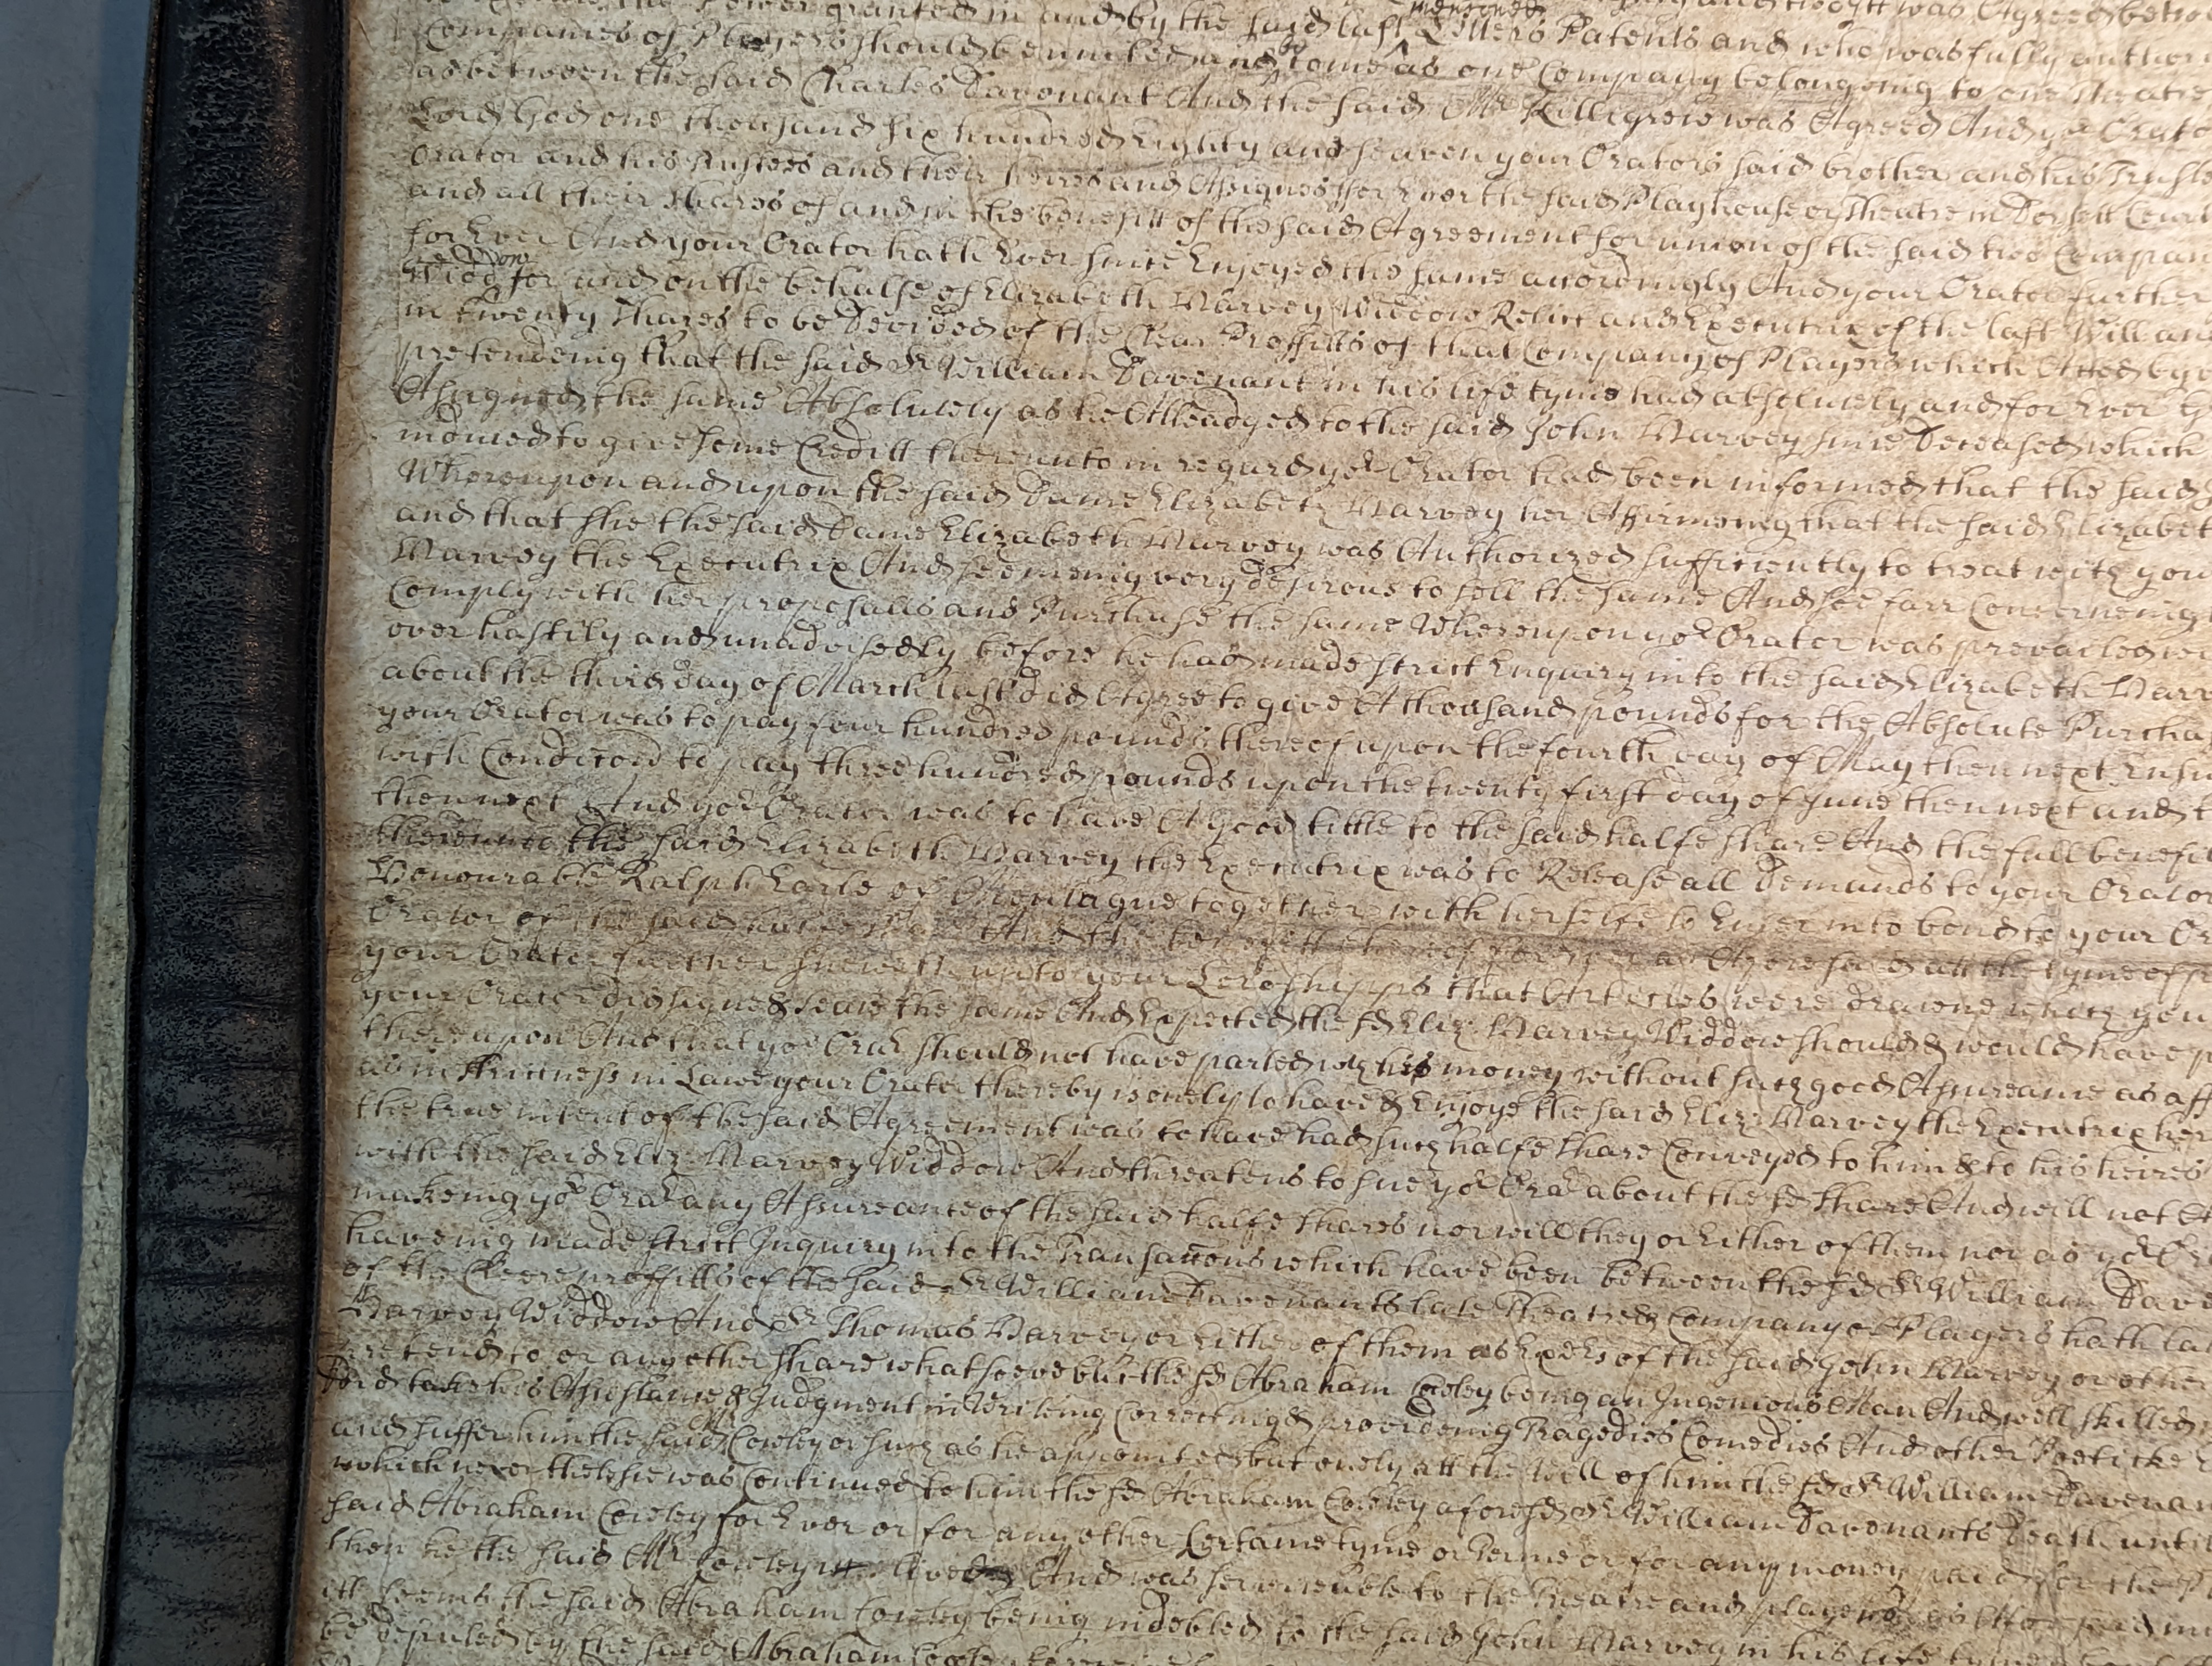 the Power granted in and by the said last mentioned Letters Patents and who was fully author
Companies of Players should be united and to come as one Company belongeing to one Theatre
as between the said Charles Davenant And the said Mr Killigrew was Agreed And yor Orator
Lord God one thousand six hundred Eighty and seaven your Orators said brother and his Truste
Orator and his Trustees and their heires and Assignes for Ever the said Playhouse or Theatre in Dorsett Court
and all their shares of and in the benefitt of the said Agreement for union of the said two Compan
for Ever And your Orator hath Ever since Enjoyed the same accordingly And your Orator further
Widdow for and on the behalfe of Elizabeth Harvey Widdow Relict and Executrix of the last Will and
in twenty shares to be Devided of the Clear Proffitts of that Company of Players which Acted by
pretendeing that the said Sr William Davenant in his life tyme had absolutely and for Ever
Assigned the same Absolutely as he Alleadged to the said John Harvey since Deceased which
moved to give some Creditt thereunto in regard yor Orator had been informed that the said
Whereupon and upon the said Dame Elizabeth Harvey her Affirmeing that the said Elizabet
and that she the said Dame Elizabeth Harvey was Authorized sufficiently to treat with you
Harvey the Executrix And seemeing very desirous to sell the same And soe farr Concerneing
Comply with her proposalls and Purchase the same Whereupon yor Orator was prevailed wi
over hastily and unadvisedly before he had made strict Enquiry into the said Elizabeth Harv
about the third day of March last did Agree to give A thousand pounds for the Absolute Purcha
your Orator was to pay four hundred pounds thereof upon the fourth day of May then next Ensu
with Condicon to pay three hundred pounds upon the twenty first day of June then next and t
then next And yor Orator was to have A good tittle to the said halfe share And the full benefit
thereunto the said Elizabeth Harvey the Executrix was to Release all Demands to your Orator
Honourable Ralph Earle of Mountague together with herselfe to Enter into bond to your Or
Orator of the said halfe share And the benefitt thereof for ever as Aforesaid att the tyme of p
your Orator further sheweth unto your Lordshipps that Articles were drawne which you
your Orator did signe & seale the same And Expected the sd Eliz: Harvey Widdow should & would have p
thereupon And that yor Oratr should not have parted wth his money without such good Assureance as aff
as in strictness in Lawe your Orator thereby is onely to have & Enjoye the said Eliz: Harvey the Executrix her
the true intent of the said Agreement was to have had such halfe share Conveyed to him & to his heires
with the said Eliz: Harvey Widdow And threatens to sue yor Oratr about the sd share And will not
makeing yor Oratr any Assureance of the said halfe shares nor will they or Either of them nor as yor Or
haveing made strict Inquiry into the Transaccons which have been between the sd Sr William Dav
of the Cleere proffitts of the said Sr William Davenants late Theatre & Company of Players hath la
Harvey Widdow And Sr Thomas Harvey or Either of them as Exects of the said John Harvey or other
pretend to or any other share whatsoever but the sd Abraham Cowley being an Ingenious Man And well skilled
Did take his Assistance & Judgment in Writeing Correcting & provideing Tragedies Comedies And other Poeticke
and suffer him the said Mr Cowley or such as he appointed but onely att the Will of him the sd Sr William Davenan
which nevertheless was Continued to him the sd Abraham Cowley afore sd Sr William Davenants Death untill
said Abraham Cowley for Ever or for any other Certaine tyme or Terme or for any money paid for the
then he the said Mr Cowley lived And was serviceable to the Theatre and players as Aforesaid
itt seems the said Abraham Cowley being indebted to the said John Harvey in his life tyme
be deputed by the said Abraham Cowley to receive